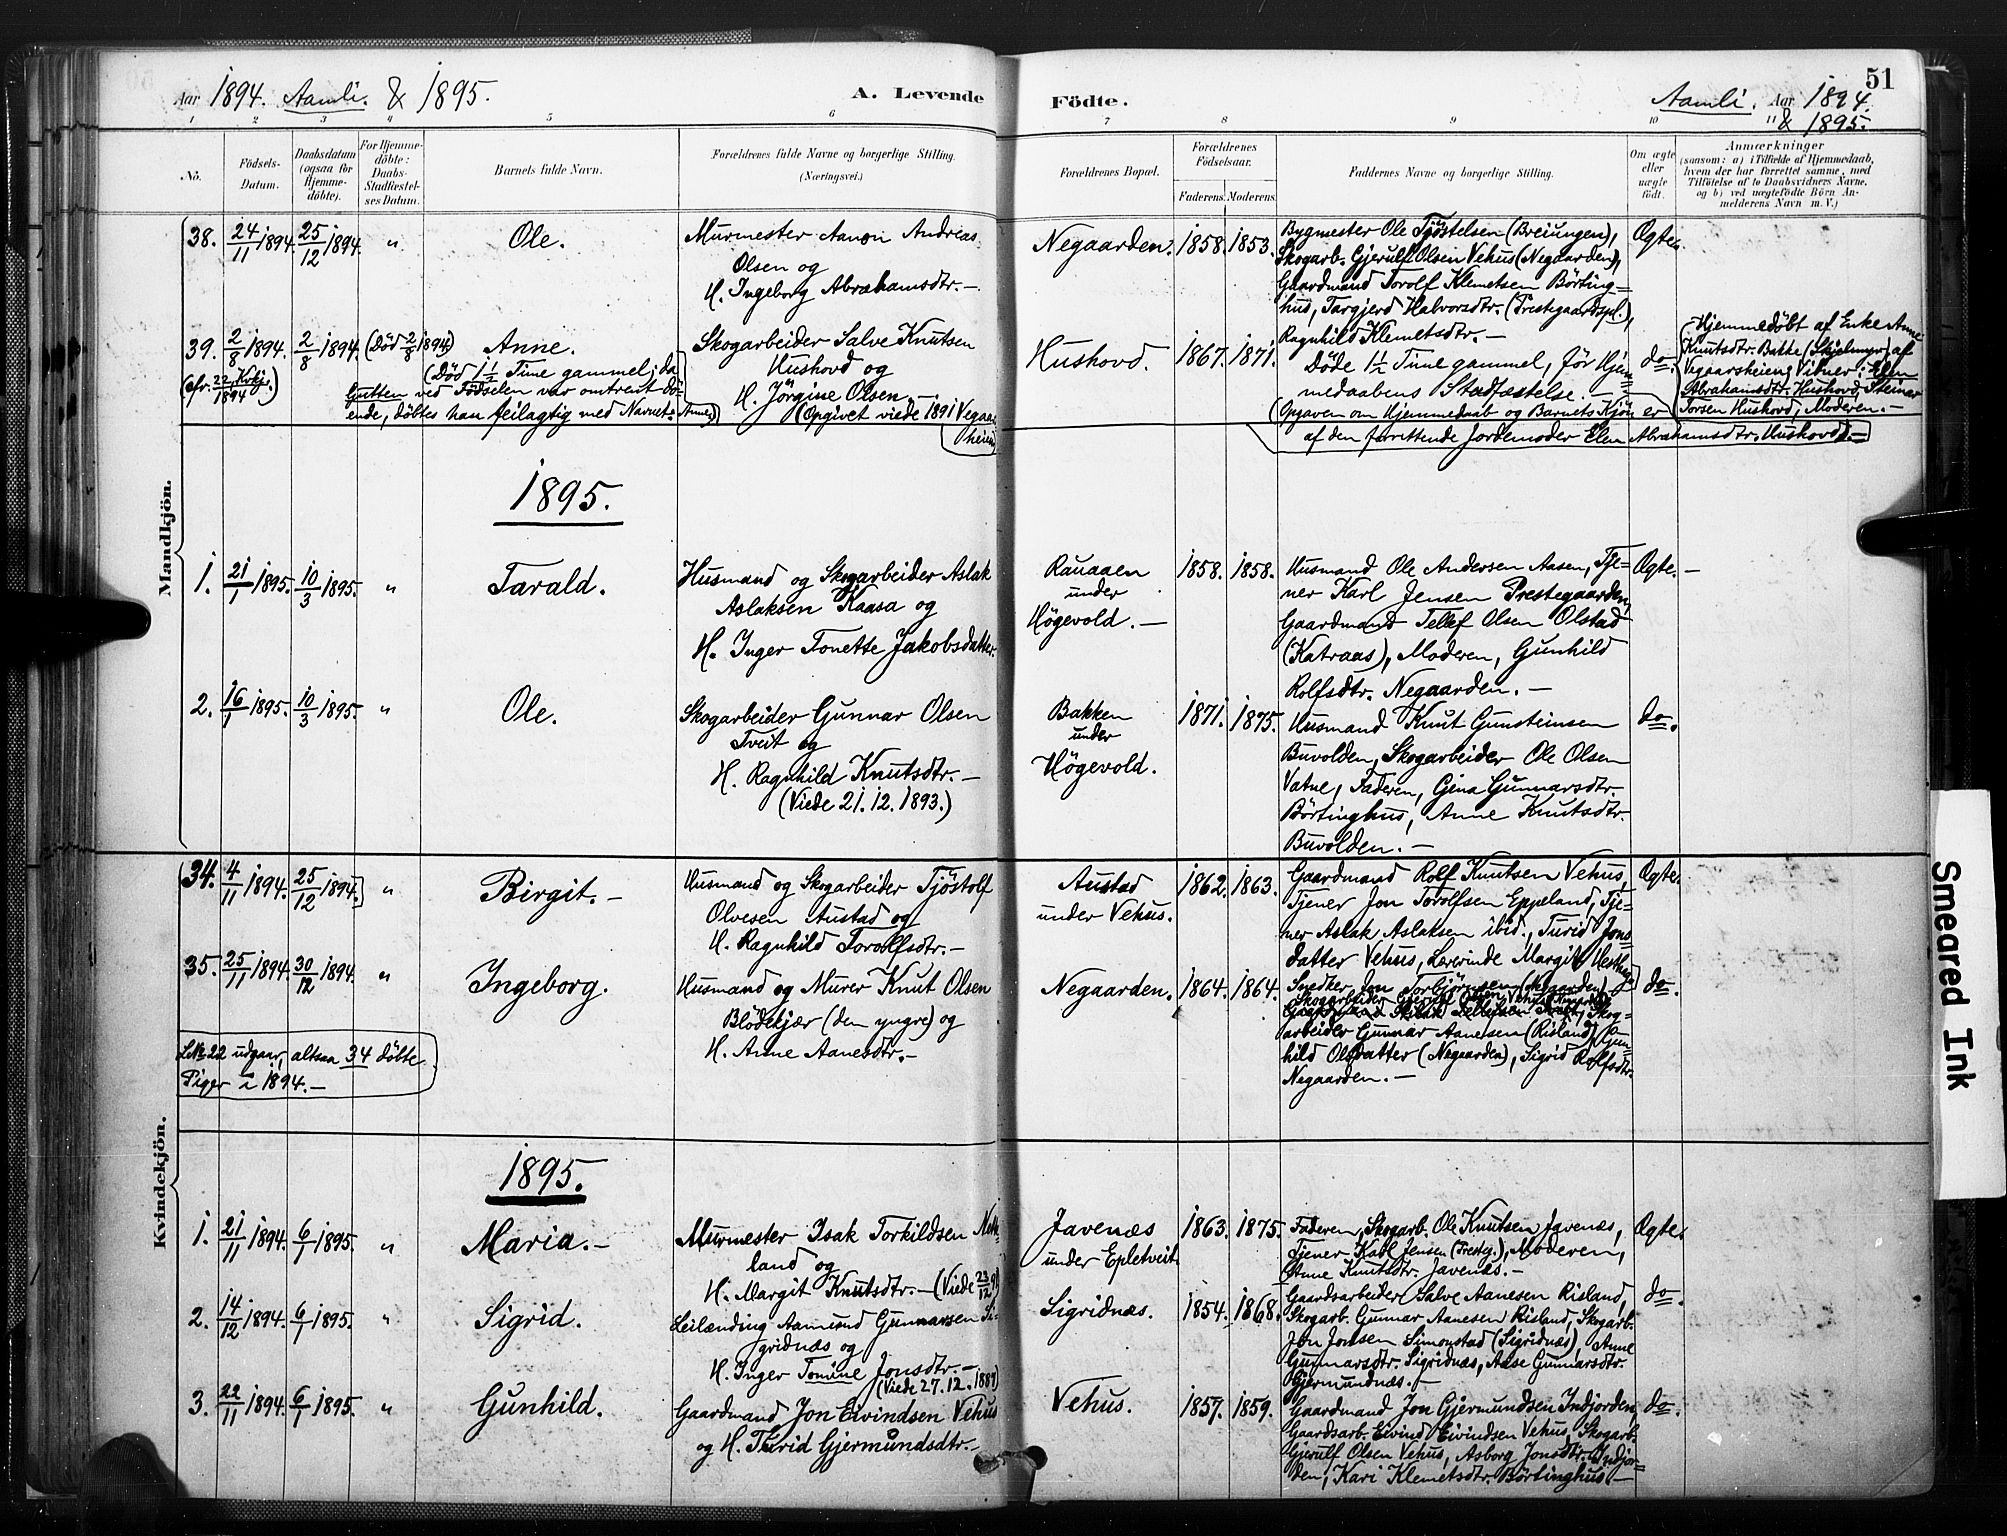 51
Aar 1894. Aamli. & 1895.
A. Levende
Födte.
Aamli. Aar 1894.
& 1895.
1 2 3 4 5 6 7 8 9 10 11
No.
Födsels-
Datum.
Daabsdatum
(ogsaa for
Hjemme-
döbte).
For Hjemme-
döbte:
Daabs-
Stadfæstel-
ses Datum.
Barnets fulde Navn.
Forældrenes fulde Navne og borgerlige Stilling.
(Næringsvei.)
Forældrenes Bopæl.
Forældrenes
Födselsaar.
Faderens. Moderens.
Faddernes Navne og borgerlige Stilling.
Om ægte
eller
uægte
födt.
Anmærkninger
(saasom: a) i Tilfælde af Hjemmedaab,
hvem der har forrettet samme, med
Tilföielse af to Daabsvidners Navne,
og b) ved uægtefödte Börn An-
melderens Navn m. V.)
Mandkjön.
38. 24/11 1894. 25/12 1894. " Ole.
Murmester Aanon Andreas
Olsen og
H. Ingeborg Abrahamsdtr. —
Negaarden. 1858. 1853.
Bygmester Ole Tjöstelsen (Breiungen),
Skogarb. Gjerulf Olsen Vehus (Negaarden),
Gaardmand Torolf Klemetsen Börting-
hus, Targjerd Halvorsdtr. (Prestegaardspl.),
Ragnhild Klemetsdtr. —
Ægte.
39. 2/8 1894. 2/8 1894. (Död 2/8 1894.) Anne.
(cfr. 22, Kvkj. 1894.)
(Död 1 1/2 Time gammel; da
Gutten ved Födselen var omtrent dö-
ende, döbtes han feilagtig med Navnet: Anne.)
Skogarbeider Salve Knutsen
Hushovd og
H. Jörgine Olsen. —
(Opgivet viede 1891 Vegaars-
heien)
Hushovd. 1867. 1871.
Döde 1 1/2 Time gammel, för Hjem-
medaabens Stadfæstelse. —
(Opgaven om Hjemmedaab og Barnets Kjön er
af den forrettende Jordemoder Elen Abrahamsdtr. Hushovd). —
do.
Hjemmedöbt af Enke Anne
Knutsdtr. Bakke (Skjelmyr) af
Vegaarsheien; Vitner: Elen
Abrahamsdtr. Hushovd, Steinar
Torsen Hushovd, Moderen. —
1895.
1. 21/1 1895. 10/3 1895. " Tarald.
Husmand og Skogarbeider Aslak
Aslaksen Kaasa og
H. Inger Tonette Jakobsdatter.
Rauaaen
under
Högevold. —
1858. 1858.
Husmand Ole Andersen Aasen, Tje-
ner Karl Jensen Prestegaarden,
Gaardmand Tellef Olsen Olstad
(Katraas), Moderen, Gunhild
Rolfsdtr. Negaarden. —
Ægte. —
2. 16/1 1895. 10/3 1895. " Ole.
Skogarbeider Gunnar Olsen
Tveit og
H. Ragnhild Knutsdtr. —
(Viede 21. 12. 1893.)
Bakken
under
Högevold.
1871. 1875.
Husmand Knut Gunsteinsen
Buvolden, Skogarbeider Ole Olsen
Vatne, Faderen, Gina Gunnarsdtr.
Börtinghus, Anne Knutsdtr.
Buvolden. —
do.
Kvindekjön.
34. 4/11 1894. 25/12 1894. " Birgit. —
Husmand og Skogarbeider Tjöstolf
Olvesen Austad og
H. Ragnhild Torolfsdtr. —
Austad
under Vehus.
1862. 1863.
Gaardmand Rolf Knutsen Vehus,
Tjener Jon Torolfsen Eppeland, Tje-
ner Aslak Aslaksen ibid., Turid Jons-
datter Vehus, Lærerinde Margit
Ægte.
35. 25/11 1894. 30/12 1894. " Ingeborg.
Husmand og Murer Knut Olsen
Blödekjær (den yngre) og
H. Anne Aanesdtr. —
Negaarden. 1864. 1864.
Snedker Jon Torbjörnsen (Negaarden),
Skogarbeider Gjerulf Olsen Vehus
Skog-
arbeider Gunnar Aanesen (Risland), Gun-
hild Olsdatter (Negaarden), Sigrid Rolfsdtr.
Negaarden. —
do.
L.No 22 udgaar, altsaa 34 döbte
Piger i 1894. —
1895.
1. 21/11 1894. 6/1 1895. " Maria. —
Murmester Isak Torkildsen
land og
H. Margit Knutsdtr. — (Viede 23/12
Javenæs
under Epletveit
1863. 1875.
Faderen, Skogarb. Ole Knutsen Javenæs,
Tjener Karl Jensen (Presteg.), Moderen,
Anne Knutsdtr. Javenæs. —
Ægte.
2. 14/12 1894. 6/1 1895. " Sigrid.
Leilænding Aamund Gunnarsen Si-
gridnæs og
H. Inger Tomine Jonsdtr. —
(Viede 27. 12. 1889)
Sigridnæs. 1854. 1868.
Gaardsarbeider Salve Aanesen Risland,
Skogarb. Gunnar Aanesen Risland, Skogarb.
Jon Jonsen Simonstad (Sigridnæs), Anne
Gunnarsdtr. Sigridnæs, Aase Gunnarsdtr.
Gjermundnæs. —
do.
3. 22/11 1894. 6/1 1895. " Gunhild.
Gaardmand Jon Eivindsen Vehus
og H. Turid Gjermundsdtr. —
Vehus. 1857. 1859.
Gaardmand Jon Gjermundsen Indjorden,
Gaardsarb. Eivind Eivindsen Vehus, Skogarb.
Gjerulf Olsen Vehus, Asborg Jonsdtr. Indjor-
den, Kari Klemetsdtr. Börtinghus. —
do.
Smeared Ink